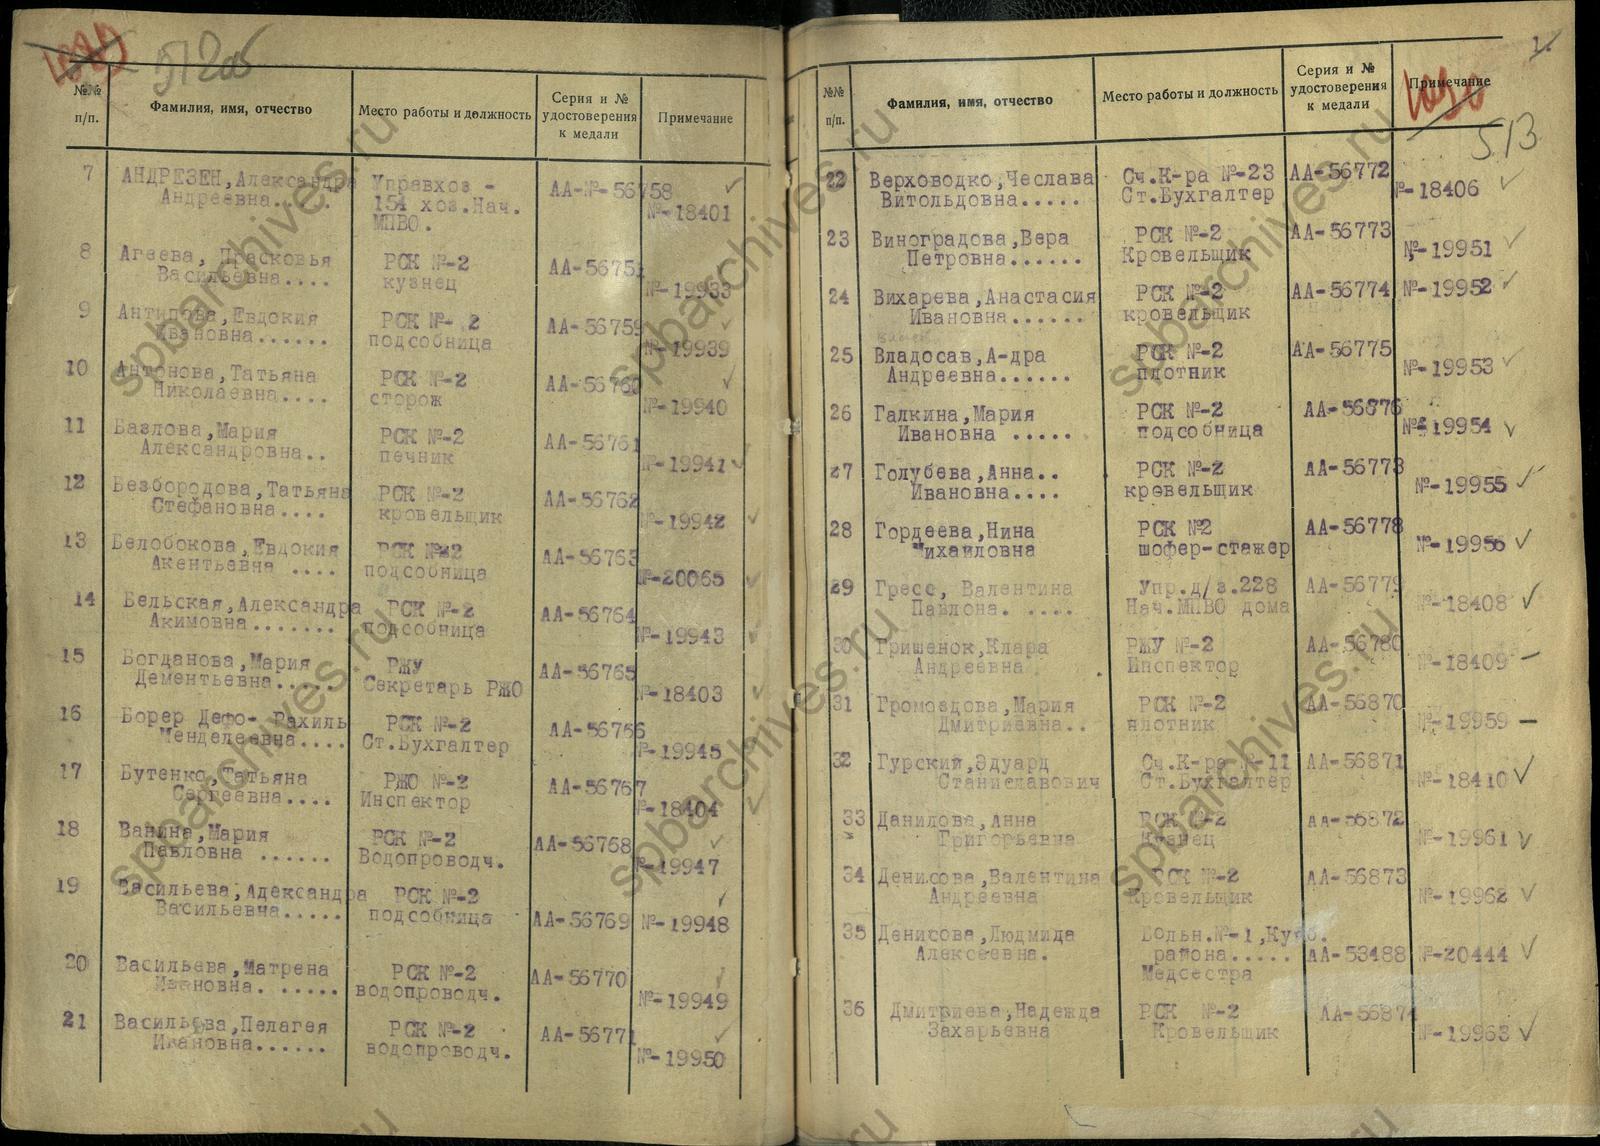 512об
№№ п/п.
Фамилия, имя, отчество
Место работы и должность
Серия и № удостоверения к медали
Примечание
7 АНДРЕЗЕН,Александра Управхоз - АА-№-56758
Андреевна..... 154 хоз.Нач. №-18401
МПВО.
8 Агеева, Прасковья РСК №-2 АА-5675
Васильевна.... кузнец №-19933
9 Антипова,Евдокия РСК №- 2 АА-56759
Ивановна...... подсобница №-19939
10 Антонова,Татьяна РСК №-2 АА-56760
Николаевна.... сторож №-19940
11 Базлова,Мария РСК №-2 АА-56761
Александровна.. печник №-19941
12 Безбородова,Татьяна РСК №-2 АА-56762
Стефановна.... кровельщик №-19942
13 Белобокова,Евдокия РСК №-2 АА-56763
Акентьевна .... подсобница №-20065
14 Бельская,Александра РСК №-2 АА-56764
Акимовна....... подсобница №-19943
15 Богданова,Мария РЖУ АА-56765
Дементьевна..... Секретарь РЖО №-18403
16 Борер Дефо- Рахиль РСК №-2 АА-56766
Менделеевна.... Ст.Бухгалтер №-19945
17 Бутенко,Татьяна РЖО №-2 АА-56767
Сергеевна.... Инспектор №-18404
18 Ванина,Мария РСК №-2 АА-56768
Павловна ...... Водопроводч. №-19947
19 Васильева,Александра РСК №-2
Васильевна..... подсобница АА-56769 №-19948
20 Васильева,Матрена РСК №-2 АА-56770
Ивановна. ..... водопроводч. №-19949
21 Васильева,Пелагея РСК №-2 АА-56771
Ивановна...... водопроводч. №-19950
513
№№ п/п.
Фамилия, имя, отчество
Место работы и должность
Серия и № удостоверения к медали
Примечание
22 Верховодко,Чеслава Сч.К-ра №-23 АА-56772
Витольдовна..... Ст.Бухгалтер №-18406
23 Виноградова,Вера РСК №-2 АА-56773
Петровна...... Кровельщик №-19951
24 Вихарева,Анастасия РСК №-2 АА-56774 №-19952
Ивановна...... кровельщик
25 Владосав,А-дра РСК №-2 АА-56775
Андреевна...... плотник №-19953
26 Галкина,Мария РСК №-2 АА-56776
Ивановна ..... подсобница №-19954
27 Голубева,Анна.. РСК №-2 АА-56773
Ивановна.... кровельщик №-19955
28 Гордеева,Нина РСК №2 АА-56778
Михайловна шофер-стажер №-19956
29 Гресс, Валентина Упр.д/з.228 АА-56779
Павлона. .... Нач.МПВО дома №-18408
30 Гришенок,Клара РЖУ №-2 АА-56780
Андреевна Инспектор №-18409
31 Громоздова,Мария РСК №-2 АА-56870
Дмитриевна.. плотник №-19959
32 Гурский,Эдуард Сч.К-ра №-11 АА-56871
Станиславович Ст.Бухгалтер №-18410
33 Данилова,Анна РСК №-2 АА-56872
Григорьевна кузнец №-19961
34 Денисова,Валентина РСК №-2 АА-56873
Андреевна Кровельщик №-19962
35 Денисова,Людмида Больн.№-1,Куйб.
Алексеевна. района..... АА-53488 №-20444
Медсестра
36 Дмитриева,Надежда РСК №-2 АА-56874
Захарьевна Кровельщик №-19963
spbarchives.ru
spbarchives.ru
spbarchives.ru
spbarchives.ru
spbarchives.ru
spbarchives.ru